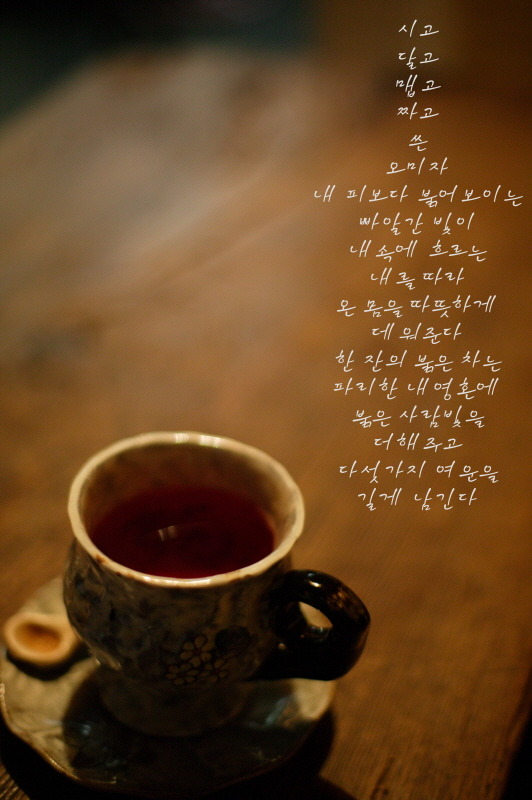 시고
달고
맵고
짜고
쓴
오미자
내 피보다 붉어보이는
빠알간 빛이
내속에 흐르는
내를따라
온 몸을따뜻하게
데워준다
한 잔의 붉은 차는
파리한 내영혼에
붉은 사람빛을
더해주고
다섯가지 여운을
길게 남긴다